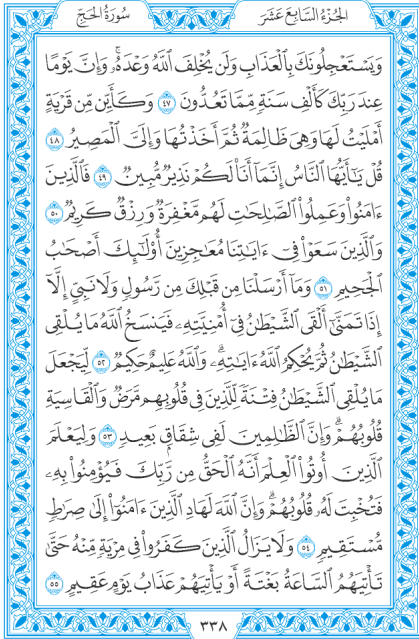 الجزء السابع عشر
سورة الحج
وَيَسْتَعْجِلُونَكَ بِالْعَذَابِ وَلَن يُخْلِفَ اللَّهُ وَعْدَهُۥ ۚ وَإِنَّ يَوْمًا
عِندَ رَبِّكَ كَأَلْفِ سَنَةٍ مِّمَّا تَعُدُّونَ ٤٧ وَكَأَيِّن مِّن قَرْيَةٍ
أَمْلَيْتُ لَهَا وَهِيَ ظَالِمَةٌ ثُمَّ أَخَذْتُهَا وَإِلَيَّ الْمَصِيرُ ٤٨
قُلْ يَٰٓأَيُّهَا النَّاسُ إِنَّمَآ أَنَا۠ لَكُمْ نَذِيرٌ مُّبِينٌ ٤٩ فَالَّذِينَ
ءَامَنُوا۟ وَعَمِلُوا۟ الصَّٰلِحَٰتِ لَهُم مَّغْفِرَةٌ وَرِزْقٌ كَرِيمٌ ٥٠
وَالَّذِينَ سَعَوْا۟ فِىٓ ءَايَٰتِنَا مُعَٰجِزِينَ أُو۟لَٰٓئِكَ أَصْحَٰبُ
الْجَحِيمِ ٥١ وَمَآ أَرْسَلْنَا مِن قَبْلِكَ مِن رَّسُولٍ وَلَا نَبِىٍّ إِلَّآ
إِذَا تَمَنَّىٰٓ أَلْقَى الشَّيْطَٰنُ فِىٓ أُمْنِيَّتِهِۦ فَيَنسَخُ اللَّهُ مَا يُلْقِى
الشَّيْطَٰنُ ثُمَّ يُحْكِمُ اللَّهُ ءَايَٰتِهِۦ ۗ وَاللَّهُ عَلِيمٌ حَكِيمٌ ٥٢ لِّيَجْعَلَ
مَا يُلْقِى الشَّيْطَٰنُ فِتْنَةً لِّلَّذِينَ فِى قُلُوبِهِم مَّرَضٌ وَالْقَاسِيَةِ
قُلُوبُهُمْ ۗ وَإِنَّ الظَّٰلِمِينَ لَفِى شِقَاقٍۭ بَعِيدٍ ٥٣ وَلِيَعْلَمَ
الَّذِينَ أُوتُوا۟ الْعِلْمَ أَنَّهُ الْحَقُّ مِن رَّبِّكَ فَيُؤْمِنُوا۟ بِهِۦ
فَتُخْبِتَ لَهُۥ قُلُوبُهُمْ ۗ وَإِنَّ اللَّهَ لَهَادِ الَّذِينَ ءَامَنُوٓا۟ إِلَىٰ صِرَٰطٍ
مُّسْتَقِيمٍ ٥٤ وَلَا يَزَالُ الَّذِينَ كَفَرُوا۟ فِى مِرْيَةٍ مِّنْهُ حَتَّىٰ
تَأْتِيَهُمُ السَّاعَةُ بَغْتَةً أَوْ يَأْتِيَهُمْ عَذَابُ يَوْمٍ عَقِيمٍ ٥٥
٣٣٨